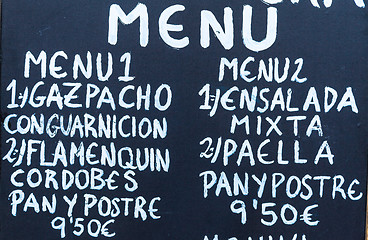 MENU
MENU1
1º/GAZPACHO
CONGUARNICION
2º/FLAMENQUIN
CORDOBES
PAN Y POSTRE
9'50€
MENU2
1º/ENSALADA
MIXTA
2º/PAELLA
PANYPOSTRE
9'50€